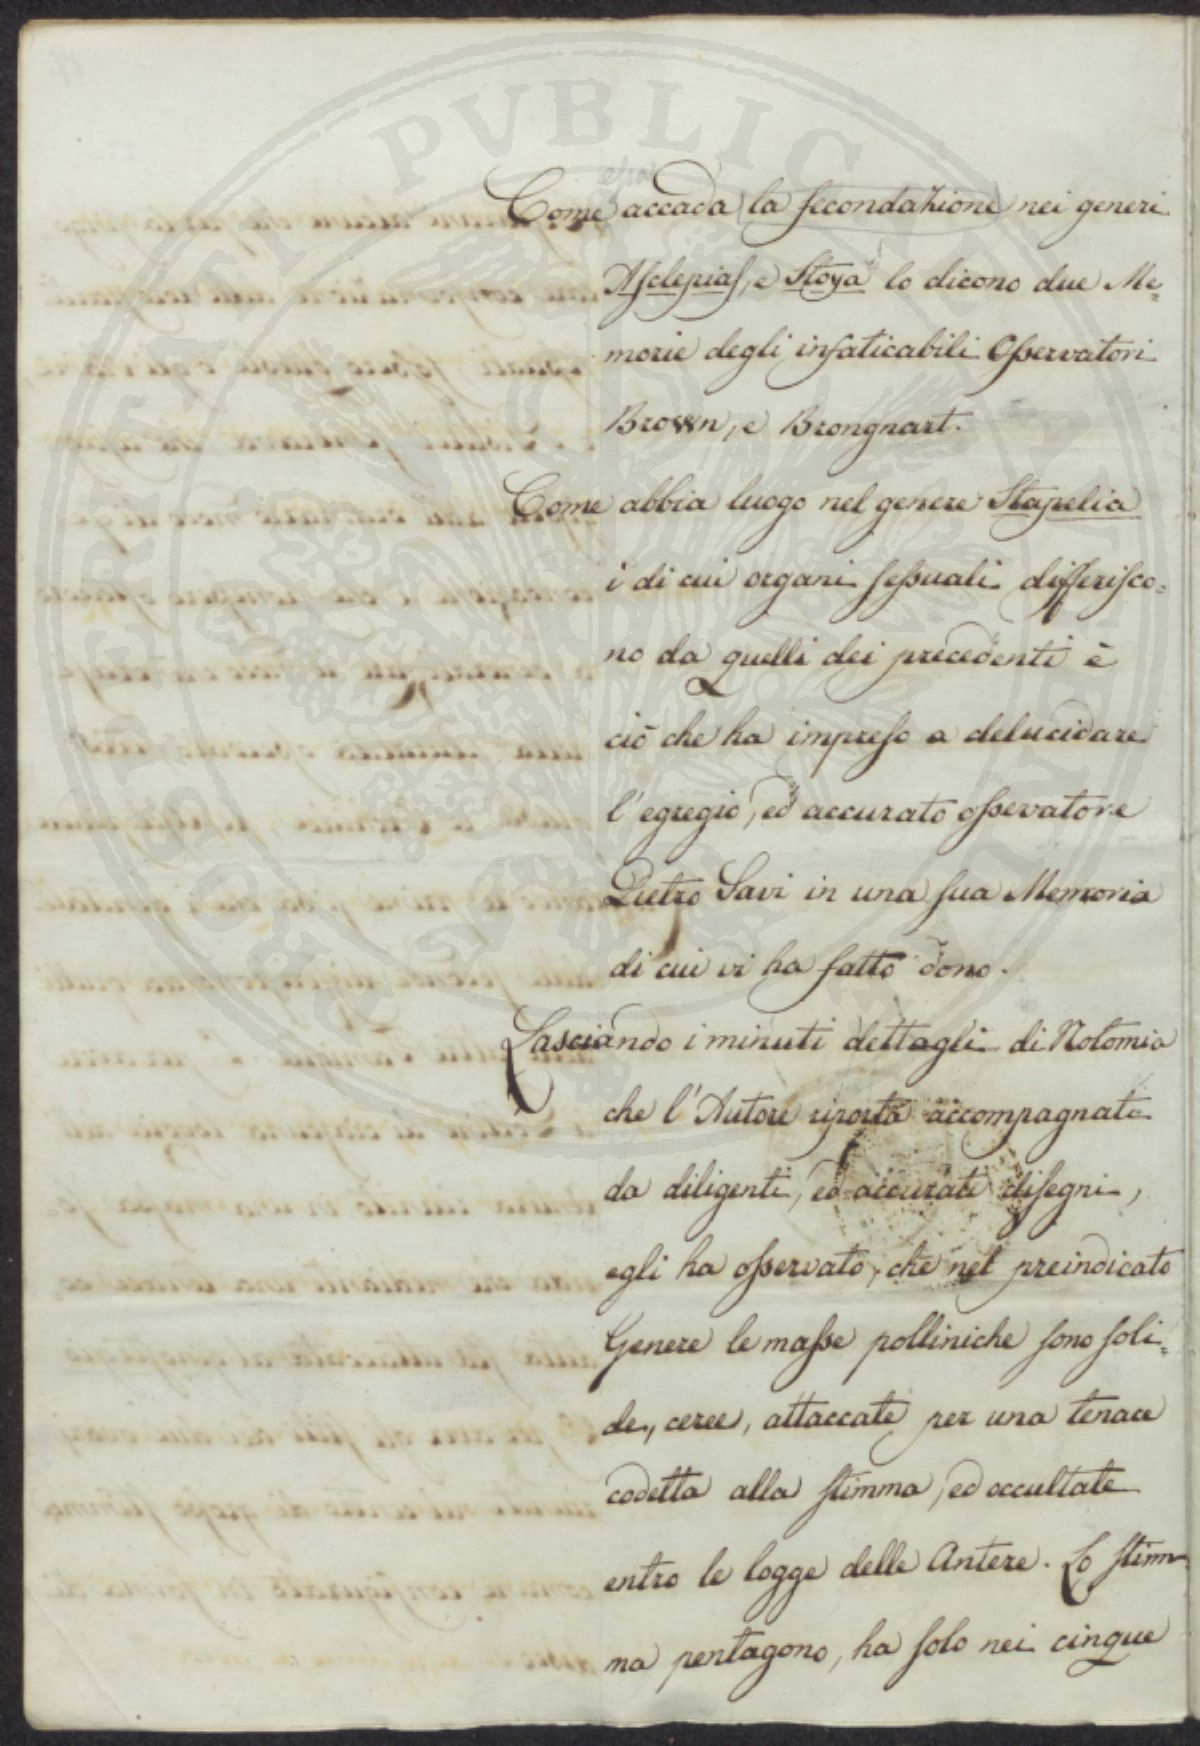 essa
Come accada la fecondazione nei generi
Asclepias, e Stoya lo dicono due Me=
morie degli infaticabili Osservatori
Brown, e Brongnart.
Come abbia luogo nel genere Stapelia
i di cui organi sessuali differisco=
no da quelli dei precedenti è
ciò che ha impreso a delucidare
l'egregio, ed accurato ossevatore
Pietro Savi in una sua Memoria
di cui vi ha fatto dono.
Lasciando i minuti dettagli di Notomia
che l'Autore riporta accompagnati
da diligenti, ed accurati disegni,
egli ha osservato, che nel preindicato
Genere le masse polliniche sono soli=
de, ceree, attaccate per una tenace
codetta alla stimma, ed occultate
entro le logge delle Antere. Lo stim
ma pentagono, ha solo nei cinque